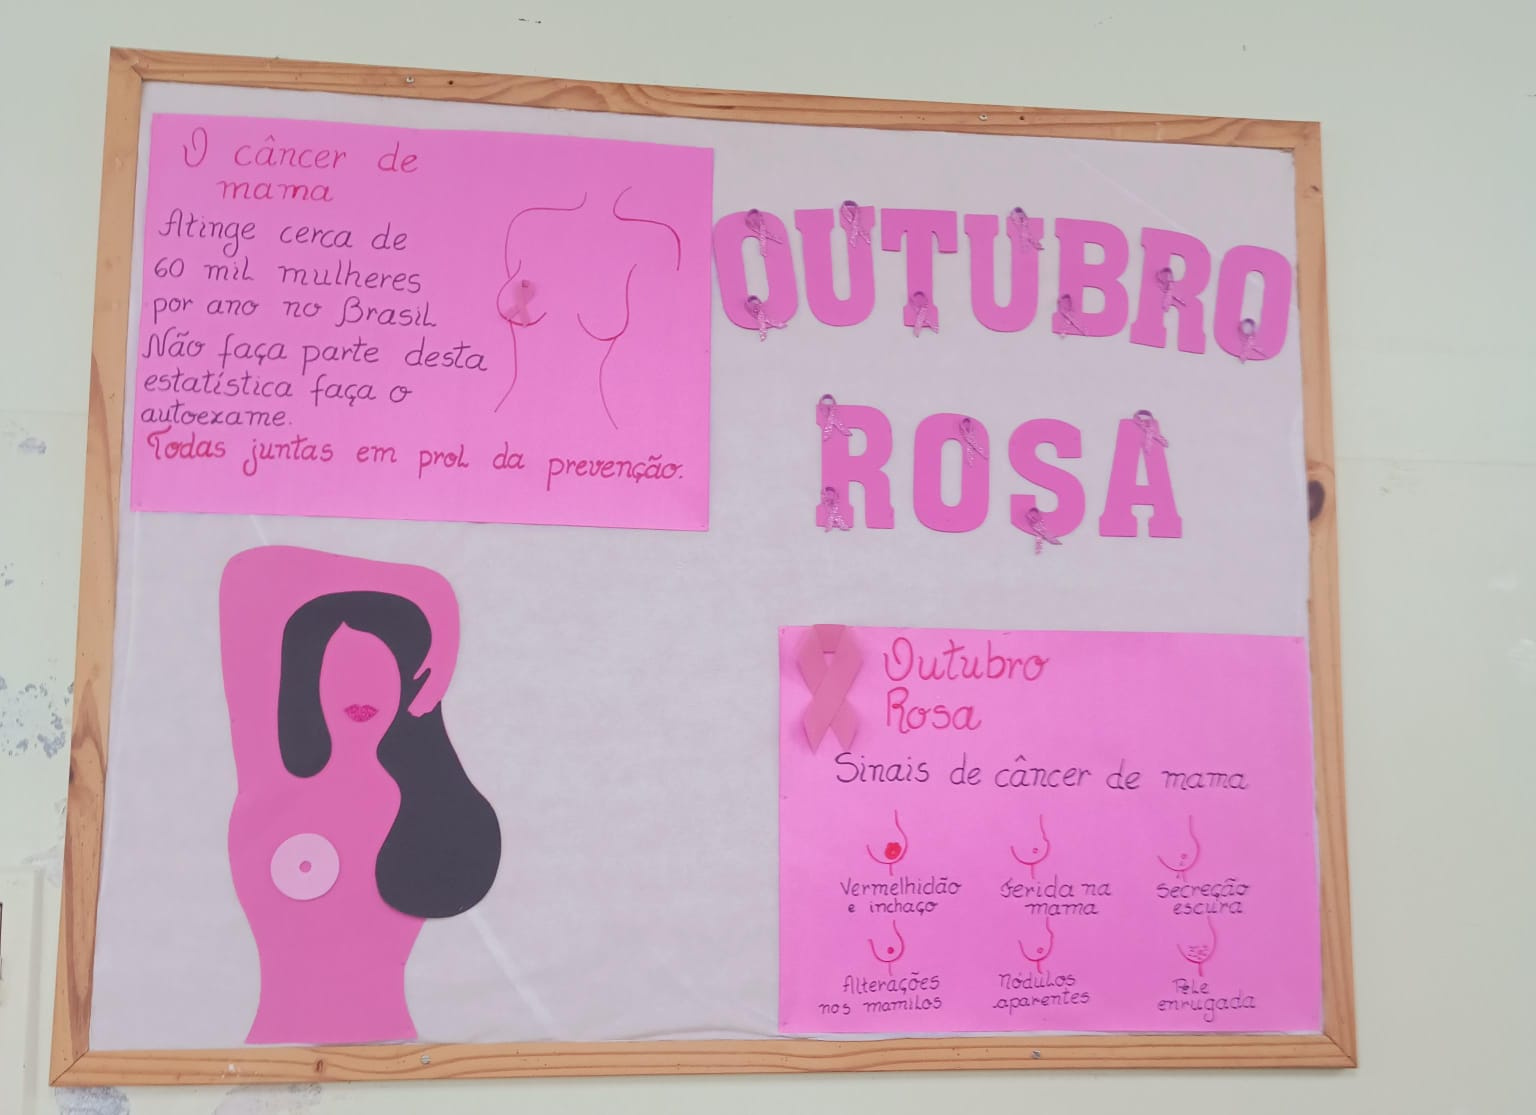 O câncer de
mama
Atinge cerca de
60 mil mulheres
por ano no Brasil
Não faça parte desta
estatística faça o
autoexame.
Todas juntas em prol da prevenção.
OUTUBRO
ROSA
Outubro
Rosa
Sinais de câncer de mama
Vermelhidão
e inchaço
Ferida na
mama
Secreção
escura
Alterações
nos mamilos
Nódulos
aparentes
Pele
enrugada